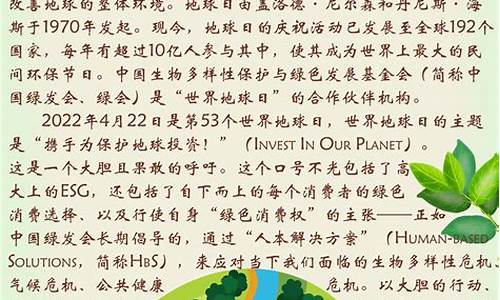 改善地球的整体环境。地球日由盖洛德·尼尔森和丹尼斯·海
斯于1970年发起。现今，地球日的庆祝活动已发展至全球192个
国家，每年有超过10亿人参与其中，使其成为世界上最大的民
间环保节日。中国生物多样性保护与绿色发展基金会（简称中
国绿发会、绿会）是“世界地球日”的合作伙伴机构。
2022年4月22日是第53个世界地球日，世界地球日的主题
是“携手为保护地球投资！”（INVEST IN OUR PLANET）。
这是一个大胆且果敢的呼吁。这个口号不光包括了高
大上的ESG，还包括了自下而上的每个消费者的绿色
消费选择、以及行使自身“绿色消费权”的主张——正如
中国绿发会长期倡导的，通过“人本解决方案”（HUMAN-BASED
SOLUTIONS，简称HBS），来应对当下我们面临的生物多样性危机、
气候危机、公共健康 危机。以大胆的行动、